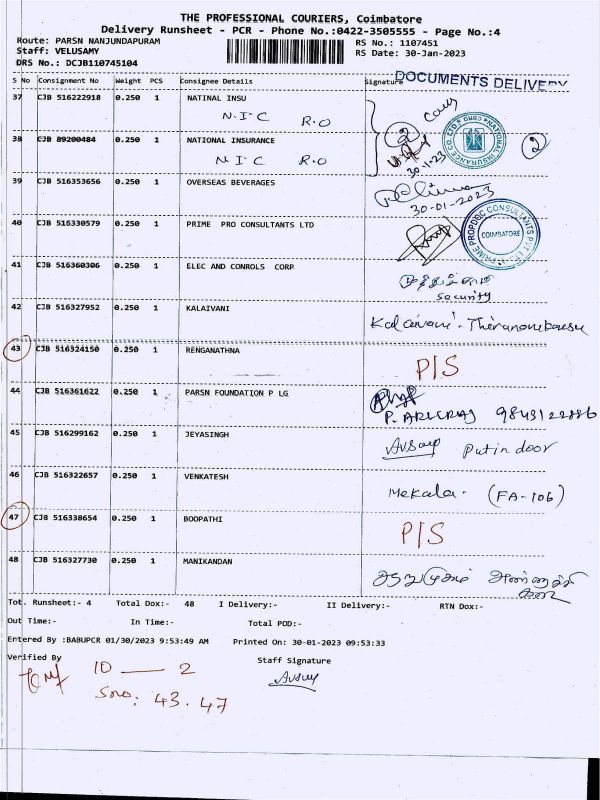 THE PROFESSIONAL COURIERS, Coimbatore
Delivery Runsheet - PCR - Phone No.:0422-3505555 - Page No.:4
Route: PARSN NANJUNDAPURAM RS No.: 1107451
Staff: VELUSAMY RS Date: 30-Jan-2023
DRS No.: DCJB110745104
S No Consignment No Weight PCS Consignee Details Signature DOCUMENTS DELIVERY
37 CJB 516222918 0.250 1 NATINAL INSU
N.I.C R.O
38 CJB 89200484 0.250 1 NATIONAL INSURANCE
N.I.C R.O 30-1-23 2
39 CJB 516353656 0.250 1 OVERSEAS BEVERAGES
30-01-2023
40 CJB 516330579 0.250 1 PRIME PRO CONSULTANTS LTD
COIMBATORE
41 CJB 516360306 0.250 1 ELEC AND CONROLS CORP
security
42 CJB 516327952 0.250 1 KALAIVANI
Kalaivani
43 CJB 516324150 0.250 1 RENGANATHNA
P/S
44 CJB 516361622 0.250 1 PARSN FOUNDATION P LG
P. ARULRAJ
45 CJB 516299162 0.250 1 JEYASINGH
Put in door
46 CJB 516322657 0.250 1 VENKATESH
Mekala. (FA-106)
47 CJB 516338654 0.250 1 BOOPATHI
P/S
48 CJB 516327730 0.250 1 MANIKANDAN
Tot. Runsheet:- 4 Total Dox:- 48 I Delivery:- II Delivery:- RTN Dox:-
Out Time:- In Time:- Total POD:-
Entered By :BABUPCR 01/30/2023 9:53:49 AM Printed On: 30-01-2023 09:53:33
Verified By Staff Signature
10 — 2
Sno: 43.47